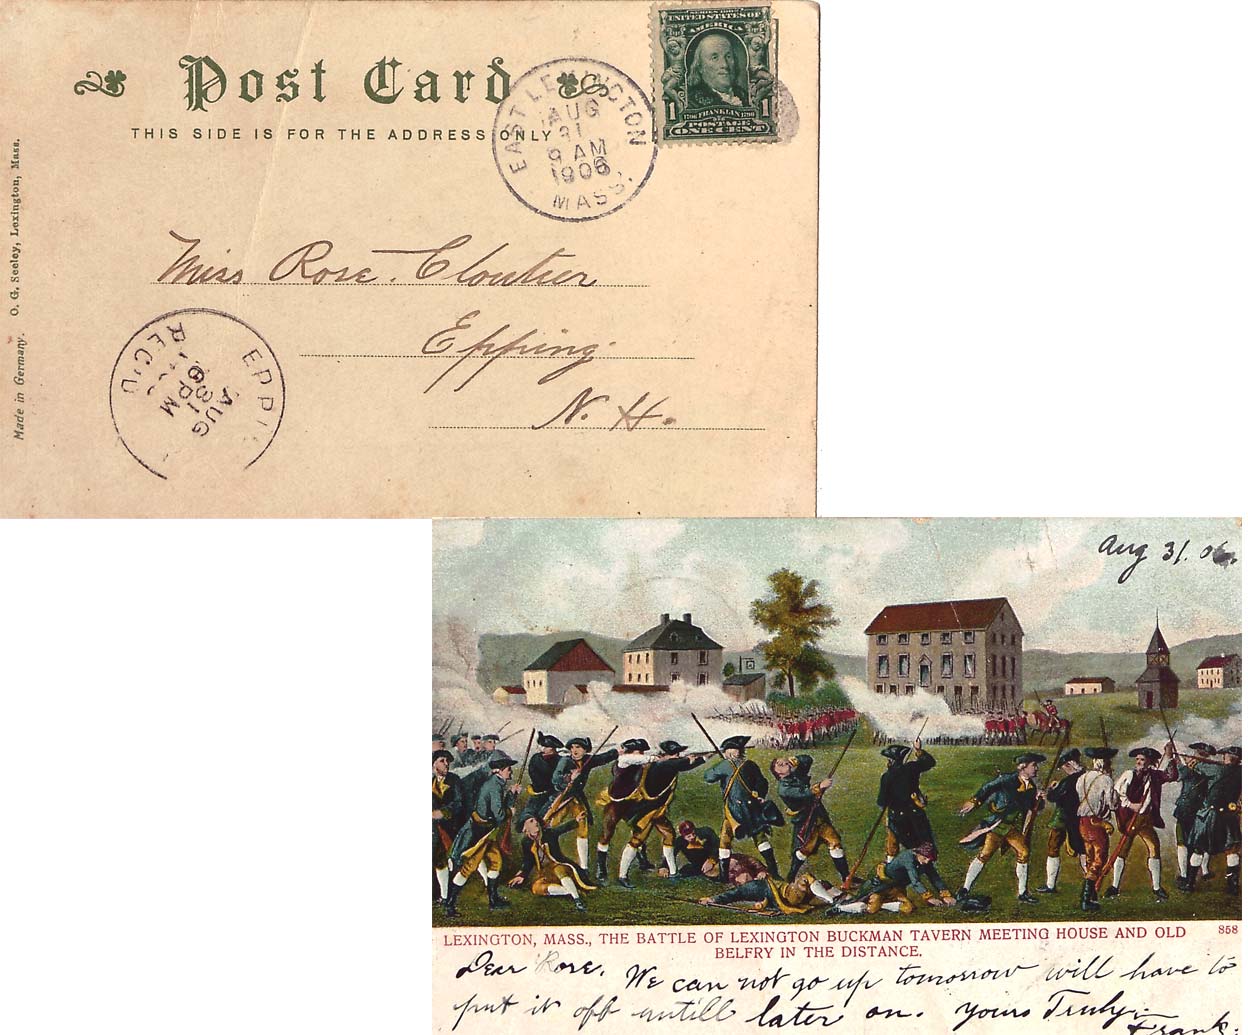 Post Card
THIS SIDE IS FOR THE ADDRESS ONLY
SERIES 1902
UNITED STATES OF
AMERICA
1 1
1706 FRANKLIN 1790
POSTAGE
ONE CENT
EAST LEXINGTON
AUG
31
9 AM
1906
MASS.
Made in Germany. O. G. Seeley, Lexington, Mass.
Miss Rose. Cloutier
Epping
N. H.
EPPI
AUG
31
6 PM
REC'D
Aug 31. 06.
LEXINGTON, MASS., THE BATTLE OF LEXINGTON BUCKMAN TAVERN MEETING HOUSE AND OLD 858
BELFRY IN THE DISTANCE.
Dear Rose. We can not go up tomorrow will have to
put it off untill later on. Yours Truly.
Frank.